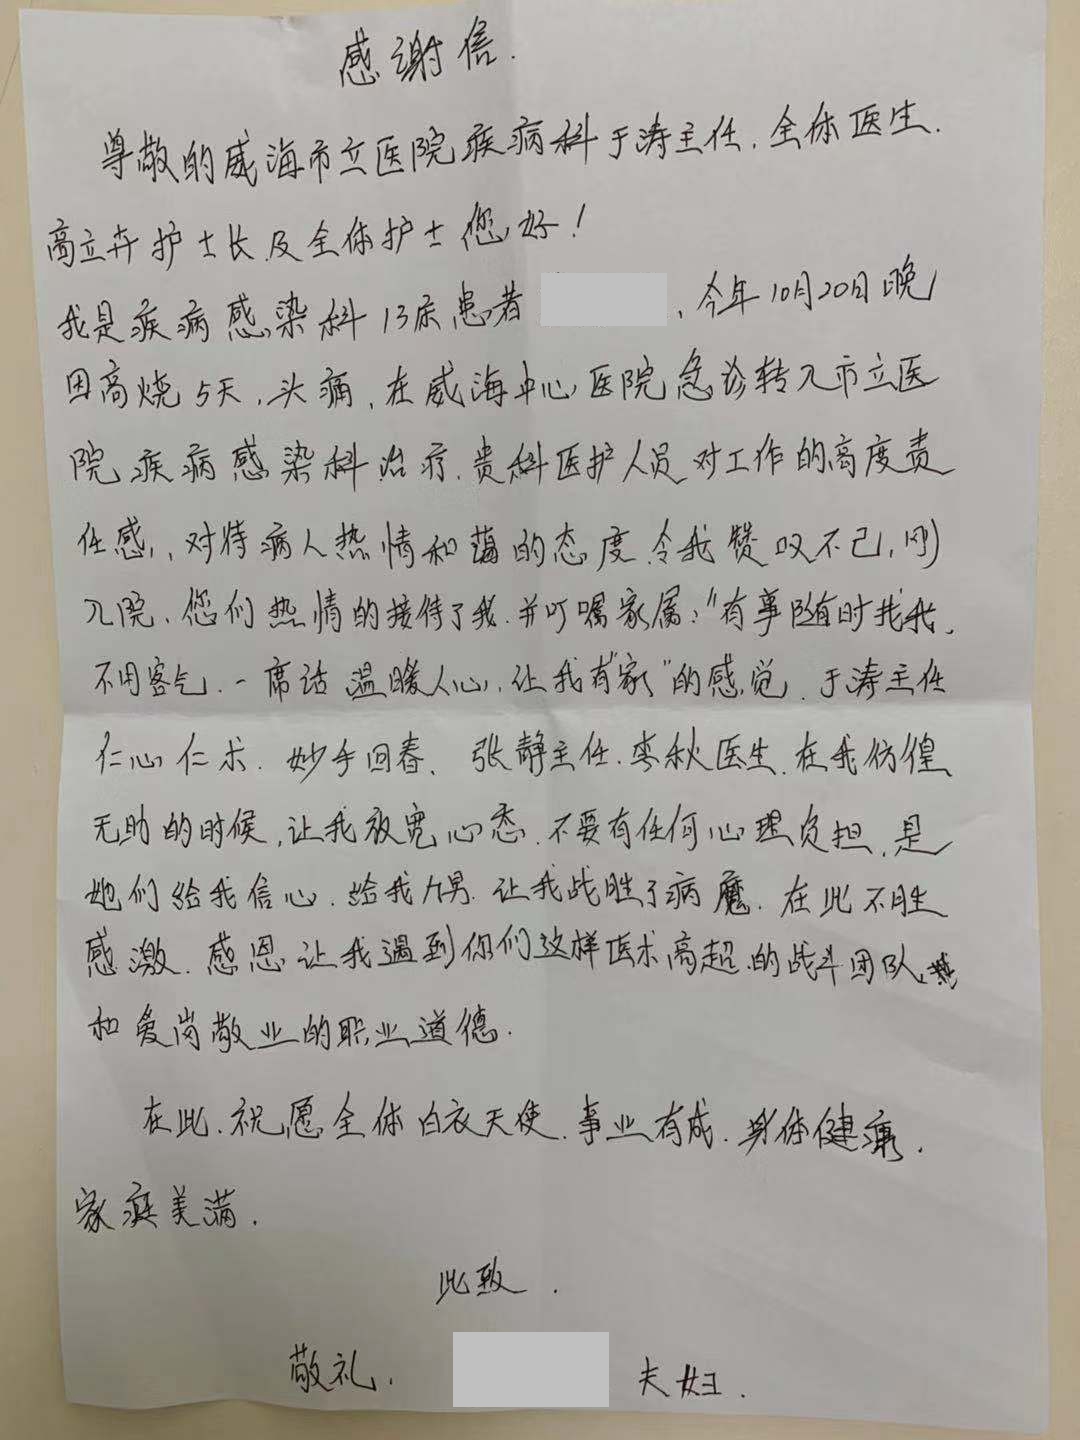 感谢信.
尊敬的威海市立医院疾病科于涛主任.全体医生.
高立卉护士长及全体护士您好！
我是疾病感染科13床患者 ,今年10月20日晚
因高烧5天,头痛,在威海中心医院急诊转入市立医
院疾病感染科治疗.贵科医护人员对工作的高度责
任感,,对待病人热情和蔼的态度令我赞叹不己,刚
入院,您们热情的接待了我.并叮嘱家属:"有事随时找我,
不用客气.一席话温暖人心,让我有"家"的感觉.于涛主任
仁心仁术.妙手回春、张静主任.李秋医生.在我仿徨
无助的时候,让我放宽心态.不要有任何心理负担.是
她们给我信心.给我力量.让我战胜了病魔.在此不胜
感激.感恩让我遇到你们这样医术高超的战斗团队
和爱岗敬业的职业道德.
在此.祝愿全体白衣天使.事业有成.身体健康.
家庭美满.
此致.
敬礼. 夫妇.